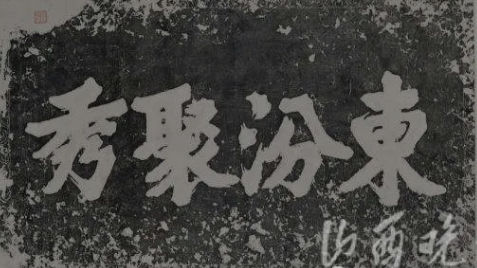 東汾聚秀
山西晚